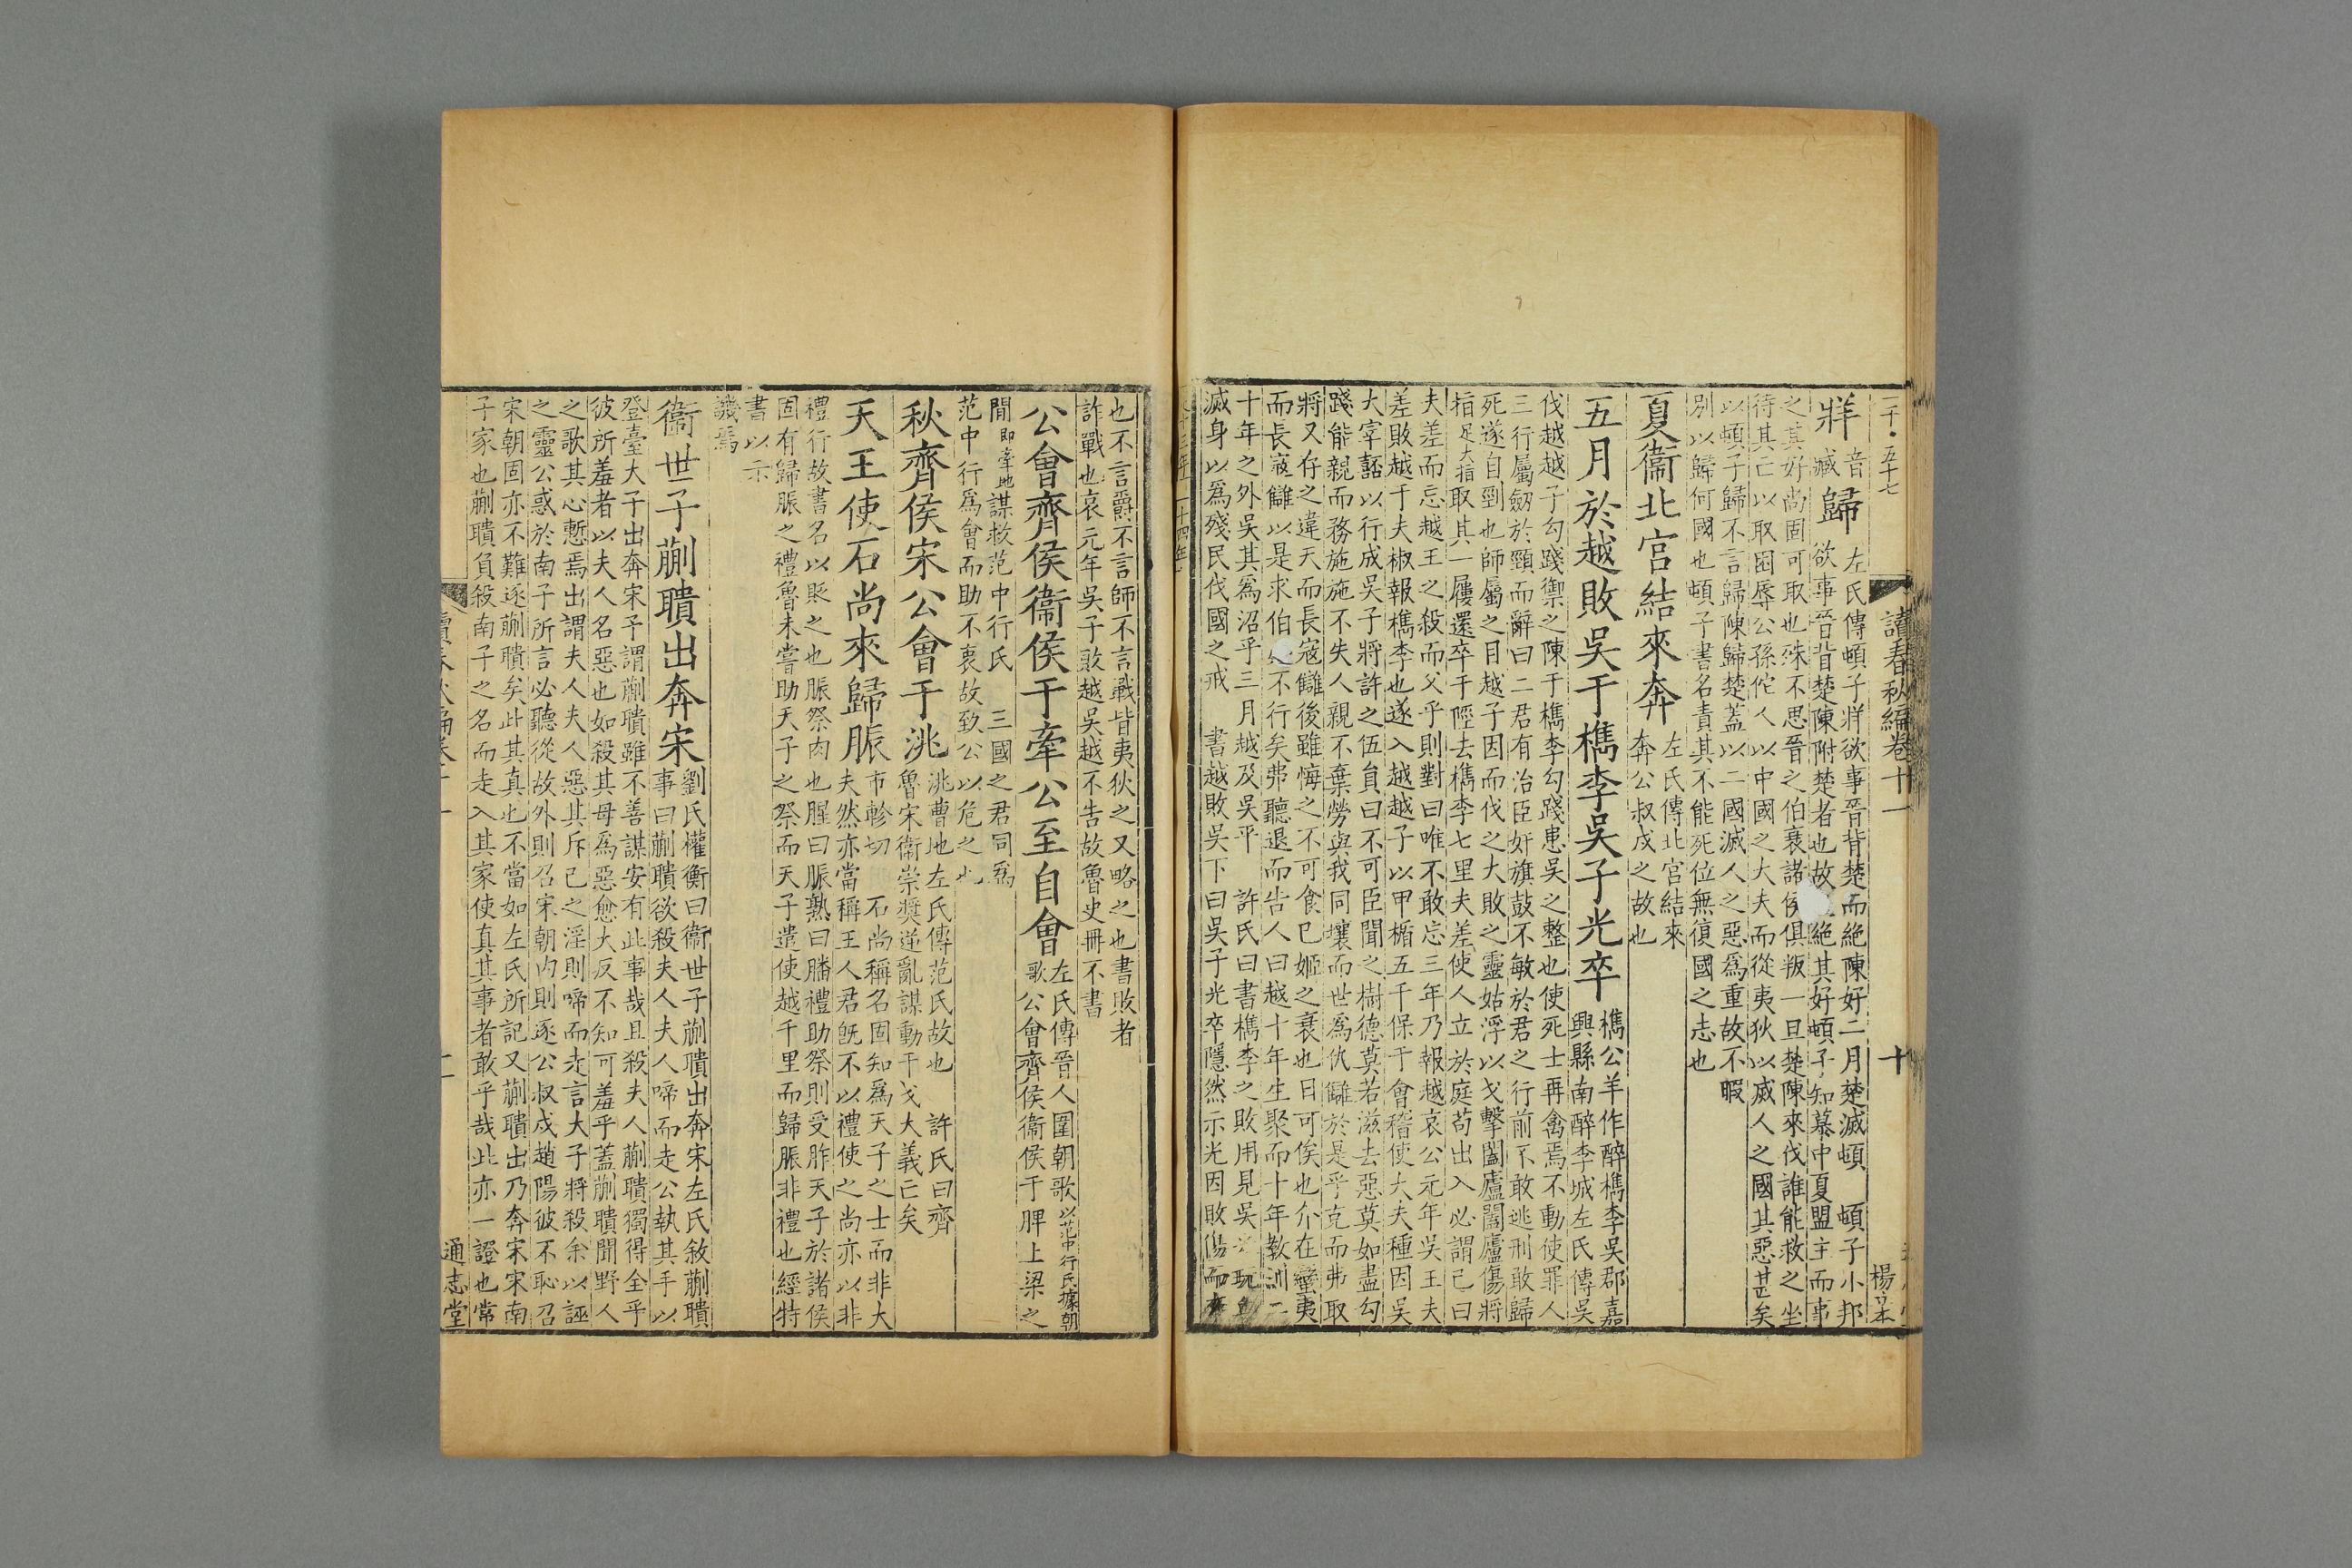 二千五十七
讀春秋編卷十一
十
楊本
牂音臧歸左氏傳頓子牂欲事晉背楚而絶陳好二月楚滅頓 頓子小邦
欲事晉背楚陳附楚者也故絶其好頓子知慕中夏盟主而事
之其好尚固可取也殊不思晉之伯衰諸侯俱叛一旦楚陳來伐誰能救之坐
待其亡以取囚辱公孫佗人以中國之大夫而從夷狄以滅人之國其惡甚矣
以頓子歸不言歸陳歸楚蓋以二國滅人之惡爲重故不暇
別以歸何國也頓子書名責其不能死位無復國之志也
夏衞北宫結來奔左氏傳北宫結來
奔公叔戍之故也
五月於越敗吳于檇李吳子光卒檇公羊作醉檇李吳郡嘉
興縣南醉李城左氏傳吳
伐越越子勾踐禦之陳于檇李勾踐患吳之整也使死士再禽焉不動使罪人
三行屬劒於頸而辭曰二君有治臣奸旗鼓不敏於君之行前不敢逃刑敢歸
死遂自剄也師屬之目越子因而伐之大敗之靈姑浮以戈擊闔廬闔廬傷將
指足大指取其一屨還卒于陘去檇李七里夫差使人立於庭苟出入必謂己曰
夫差而忘越王之殺而父乎則對曰唯不敢忘三年乃報越哀公元年吳王夫
差敗越于夫椒報檇李也遂入越越子以甲楯五千保于會稽使大夫種因吳
大宰嚭以行成吳子將許之伍員曰不可臣聞之樹德莫若滋去惡莫如盡勾
踐能親而務施施不失人親不棄勞與我同壤而世爲仇讎於是乎克而弗取
將又存之違天而長寇讎後雖悔之不可食已姬之衰也日可俟也介在蠻夷
而長寇讎以是求伯不行矣弗聽退而告人曰越十年生聚而十年教訓二
十年之外吳其爲沼乎三月越及吳平 許氏曰書檇李之敗用見吳
滅身以爲殘民伐國之戒 書越敗吳下曰吳子光卒隱然示光因敗傷而卒
也不言爵不言師不言戰皆夷狄之又略之也書敗者
詐戰也哀元年吳子敗越吳越不告故魯史冊不書
公會齊侯衞侯于牽公至自會左氏傳晉人圍朝歌以范中行氏據朝
歌公會齊侯衞侯于脾上梁之
間即牽地謀救范中行氏 三國之君同爲
范中行爲會而助不衷故致公以危之也
秋齊侯宋公會于洮洮曹地左氏傳范氏故也 許氏曰齊
魯宋衞崇獎逆亂謀動干戈大義亡矣
天王使石尚來歸脤市軫切 石尚稱名固知爲天子之士而非大
夫然亦當稱王人君旣不以禮使之尚亦以非
禮行故書名以貶之也脤祭肉也腥曰脤熟曰膰禮助祭則受胙天子於諸侯
固有歸脤之禮魯未嘗助天子之祭而天子遣使越千里而歸脤非禮也經特
書以示
譏焉
衞世子蒯聵出奔宋劉氏權衡曰衞世子蒯聵出奔宋左氏敘蒯聵
事曰蒯聵欲殺夫人夫人啼而走公執其手以
登臺大子出奔宋予謂蒯聵雖不善謀安有此事哉且殺夫人蒯聵獨得全乎
彼所羞者以夫人名惡也如殺其母爲惡愈大反不知可羞乎蓋蒯聵聞野人
之歌其心慙焉出謂夫人夫人惡其斥己之淫則啼而走言大子將殺余以誣
之靈公惑於南子所言必聽從故外則召宋朝内則逐公叔戍趙陽彼不恥召
宋朝固亦不難逐蒯聵矣此其真也不當如左氏所記又蒯聵出乃奔宋宋南
子家也蒯聵負殺南子之名而走入其家使真其事者敢乎哉此亦一證也常
通志堂